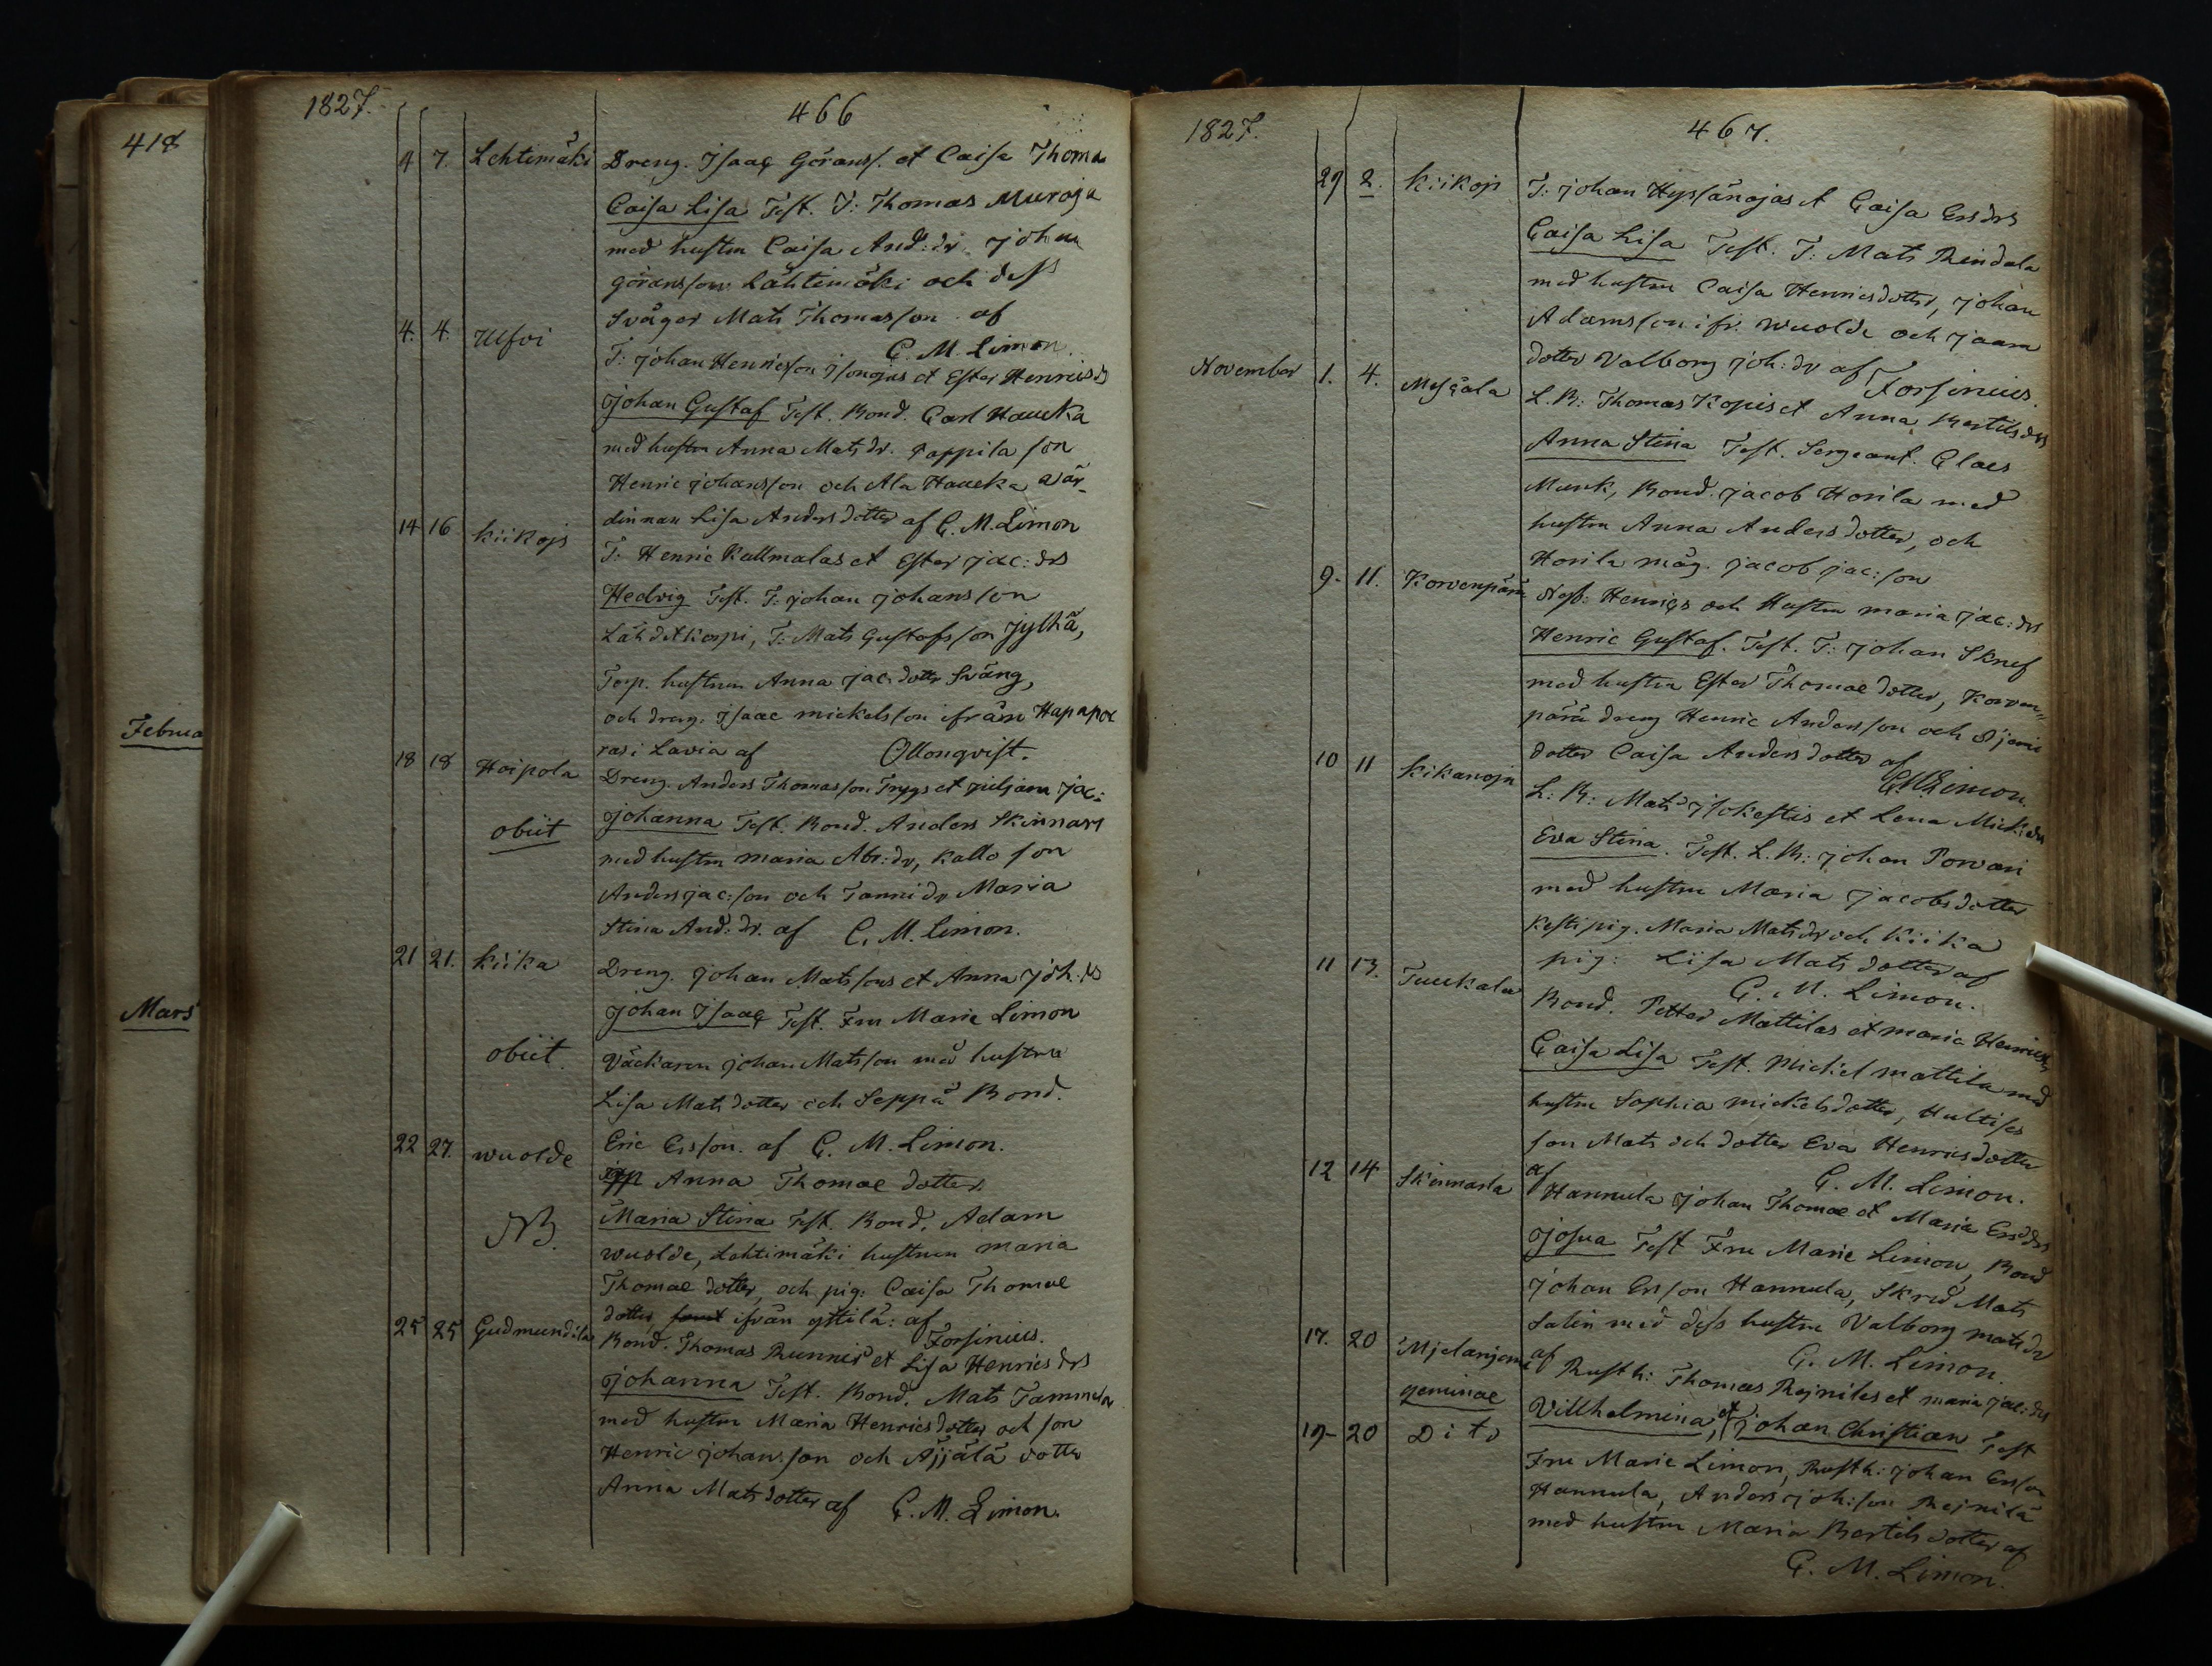 418
Februa
Mars
1827.
466
4 7. Lehtimäki Dreng. Isaac Görans/. et Caisa Thomæ
Caisa Lisa Test. T: Thomas Muroja
med hustru Caisa And: dr. Johan
Göransson Lähtimäki och dess
Svåger Mats Thomasson af
C. M. Limon.
4. 4. Ulfvi T: Johan Henricson et Ester Henricsdr
Johan Gustaf Test. Bond. Carl Haucka
med hustru Anna Mats dr. Pappila son
Henric Johansson och Ala Haucka vär-
dinnan Lisa Anders dotter af C. M. Limon
14 16 Kiikojs T. Henric Kallmalas et Ester Jac: drs
Hedvig Test. T: Johan Johansson
T: Mats Gustafsson Jylhä,
Torp. hustrun Anna Jac. dotter Sväng,
och dreng. Isaac Mickelsson ifrån
i Lavia af Ollonqvist.
18 18 Hoipola Dreng. Anders Thomasson Trygs et Juliana Jac:
obiit Johanna Test. Bond. Anders Skinnari
med hustru Maria Abr: dr, Kallo son
Anders Jac: son och Tannidr Maria
Stina And: dr. af C. M. Limon.
21 21. Kiika Dreng. Johan Matssons et Anna Joh. ds
Johan Isaac Test. Fru Marie Limon
obiit. Väckaren Johan Matsson med hustru
Lisa Mats dotter och Seppä Bond.
Eric Ersson. af C. M. Limon.
22 27. Wuolde Anna Thomae dotter.
NB. Maria Stina Test. Bond. Adam
Wuolde, Lehtimäki hustrun Maria
Thomae dotter, och pig: Caisa Thomae
dotter, ifrån af Forsinius.
25 25 Gudmundila Bond. Thomas Runnis et Lisa Henrics drs
Johanna Test. Bond. Mats Tammela
med hustru Maria Henrics dotter och son
Henric Johansson och Äijälä dotter
Anna Mats dotter af C. M. Limon.
1827.
467.
29 2. Kiikojs T: Johan Hyssänojas et Caisa Ers drs
Caisa Lisa Test. T: Mats Rindala
med hustru Caisa Henricsdotter, Johan
Adamsson ifr. Wuolde och
dotter Valborg Joh: dr af Forsinius.
November 1. 4. Meskala L. B: Thomas Kopis et Anna Bertils drs
Anna Stina Test. Sergeant. Claes
Munk, Bond. Jacob Horila med
hustru Anna Anders dotter, och
Horila måg. Jacob Jac: son
9. 11. Korvenpärä Henrics och Hustru Maria Jac: drs
Henric Gustaf. Test. T: Johan Skref
med hustru Ester Thomae dotter, Korven-
pärä dreng Henric Andersson och
dotter Caisa Anders dotter af
C. M. Limon.
10 11 Kikanoja L: B: Mats Isokestis et Lena Mick: drs
Eva Stina. Test. L. B: Johan Porvari
med hustru Maria Jacobs dotter
Kesti pig. Maria Mats dr och Kiika
pig: Lisa Mats dotter af
C. M. Limon.
11 13. Tuukala Bond. Petter Mattilas et Maria Henricsdr
Caisa Lisa Test. Mickel Mattila med
hustru Sophia Mickels dotter, Hultises
son Mats och dotter Eva Henrics dotter
af C. M. Limon.
12 14 Skinnarla Hannula Johan Thomae et Maria Ers drs
Josua Test Fru Marie Limon, Bond
Johan Ersson Hannula, Skred. Mats
Salin med dess hustru Valborg Mats dr
af C. M. Limon.
17. 20 Mjelanjemi Rusth: Thomas Rejniles et Maria Jac: drs
geminae Villhelmina, et Johan Christian Test
19- 20 Dito Fru Marie Limon, Rusth: Johan Ersson
Hannula, Anders Joh: son Rejnilä
med hustru Maria Bertils dotter af
C. M. Limon.